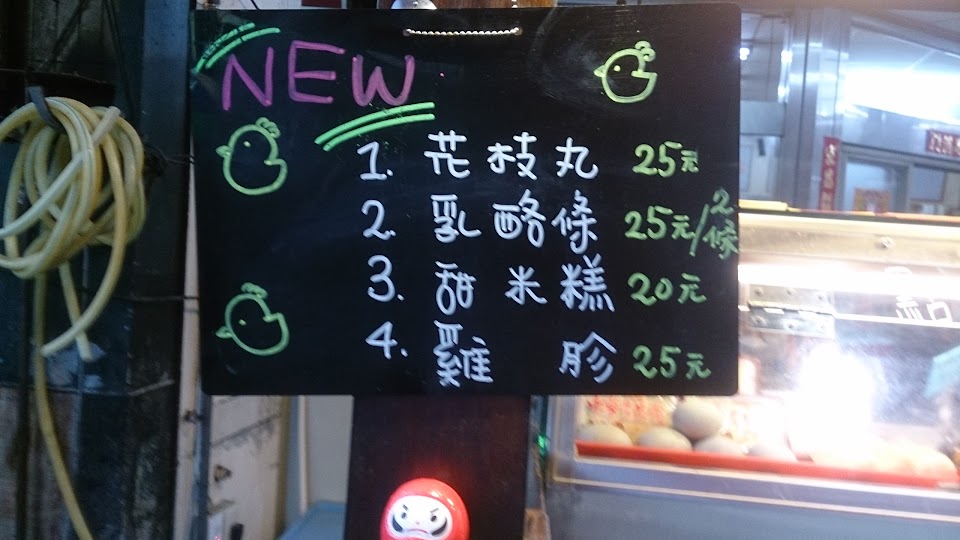 NEW
1. 花枝丸 25元
2. 乳酪條 25元/2條
3. 甜米糕 20元
4. 雞胗 25元